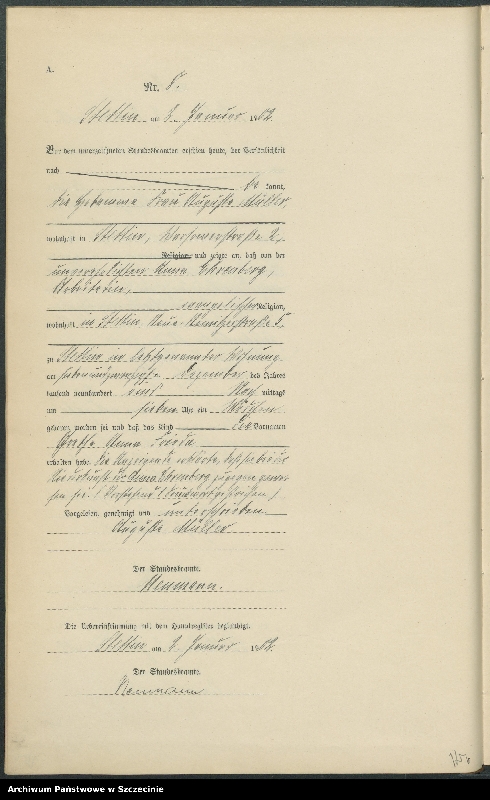 A.
Nr. 8.
Stettin am 2. Januar 1902.
Vor dem unterzeichneten Standesbeamten erschien heute, der Persönlichkeit
nach
be kannt,
die Hebamme Frau Auguste Müller
wohnhaft in Stettin,
Religion, und zeigte an, daß von der
unverehelichten Anna Ehrenberg,
Arbeiterin,
evangelischer Religion,
wohnhaft in Stettin Neue
zu Stettin in letztgenannter Wohnung
am siebenundzwanzigsten Dezember des Jahres
tausend neunhundert eins Nach mittags
um sieben Uhr ein Mädchen
geboren worden sei und daß das Kind die Vornamen
Anna Frieda
erhalten habe. Die Anzeigende erklärte, daß sie bei der
Niederkunft der Anna Ehrenberg zugegen gewe-
sen sei.
Vorgelesen, genehmigt und unterschrieben
Auguste Müller
Der Standesbeamte.
Neumann.
Die Uebereinstimmung mit dem Hauptregister beglaubigt.
Stettin am 2. Januar 1902.
Der Standesbeamte.
Neumann
Archiwum Państwowe w Szczecinie